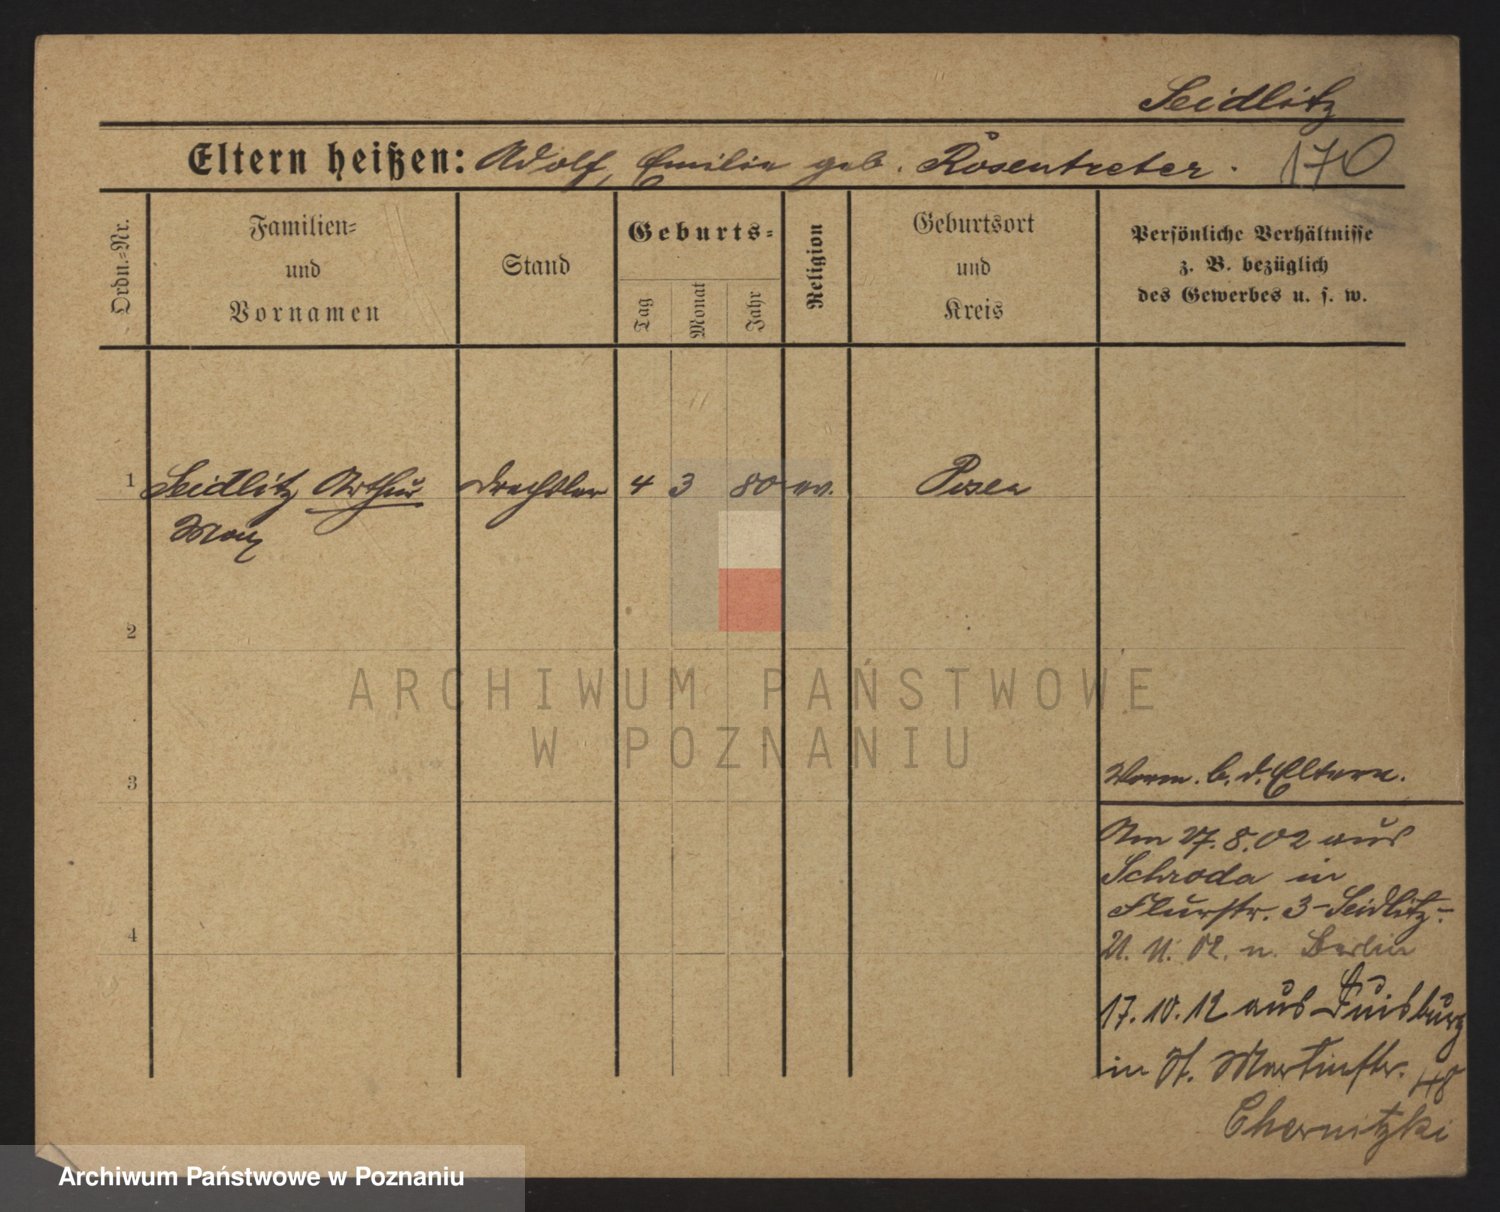 Seidlitz
Eltern heißen: Adolf, Emilie geb. Rosentreter. 170
Ordn.-Nr.
Familien-
und
Vornamen
Stand
Geburts-
Tag
Monat
Jahr
Religion
Geburtsort
und
Kreis
Persönliche Verhältnisse
z. B. bezüglich
des Gewerbes u. s. w.
1 Seidlitz Arthur Drechsler 4 3 80 ev. Posen
Max
2
ARCHIWUM PAŃSTWOWE
W POZNANIU
3
Vorm. b. d. Eltern.
Am 27.8.02 aus
Schroda in
Flurstr. 3 - Seidlitz -
4
21. 11. 02. n. Berlin
17.10.12 aus Duisburg
in St. Martinstr. 48
Chernitzki
Archiwum Państwowe w Poznaniu